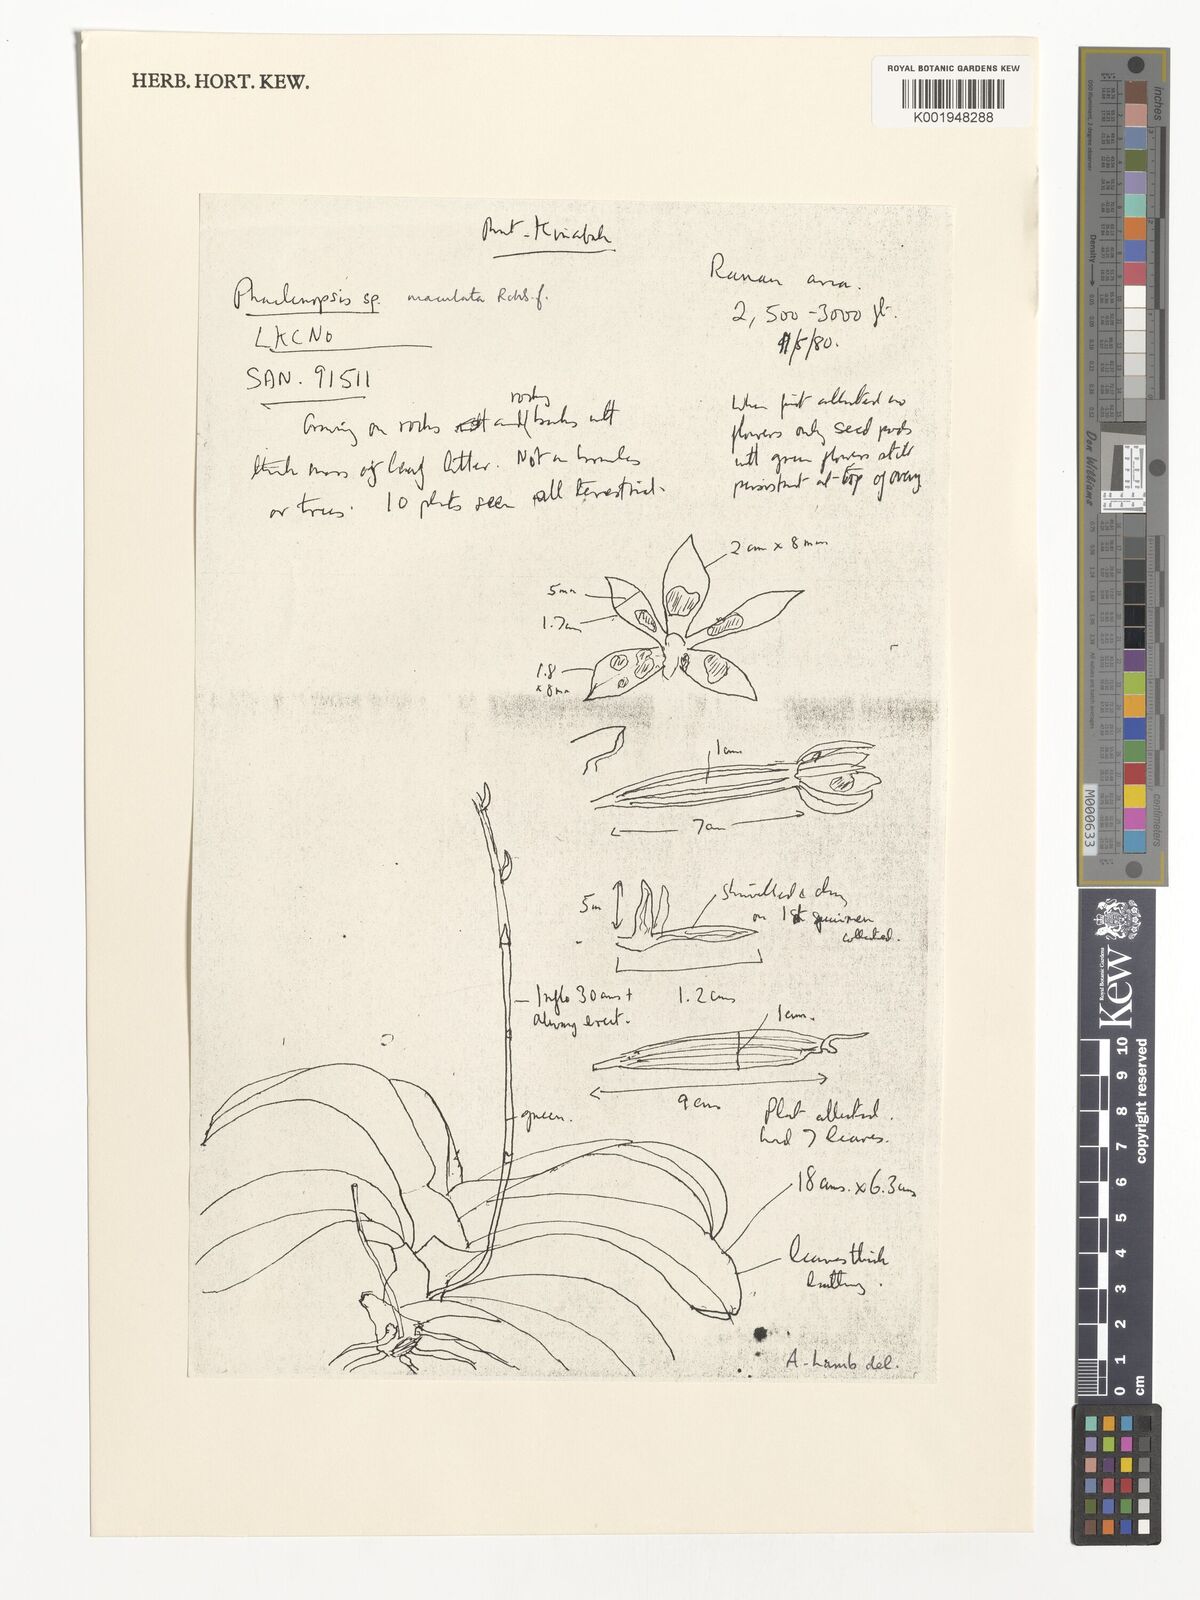 HERB. HORT. KEW.
ROYAL BOTANIC GARDENS KEW
K001948288
Mt. Kinabalu
Phalaenopsis sp. maculata Rchb.f.
LKC No
SAN. 91511
Ranau area.
2,500-3000 ft.
/5/80.
Growing on rocks and rocky banks with
thick mass of leaf litter. Not on branches
or trees. 10 plants seen all terrestrial.
When first collected no
flowers only seed pods
with green flowers still
persistent at top of ovary
2 cm x 8 mm
5mm
1.7cm
1.8
x 8mm
1cm
7cm
5m
shrivelled & dry
on 1st specimen
collected.
1.2 cms
Inflo 30 cms +
always erect.
1cm.
9 cms
green.
Plant collected.
had 7 leaves.
18 cms. x 6.3 cms
leaves thick
leathery.
A. Lamb del.
inches
centimetres
Density
Don Williams
M000633
Royal Botanic Gardens
Kew
0 1 2 3 4 5 6 7 8 9 10
cm
copyright reserved